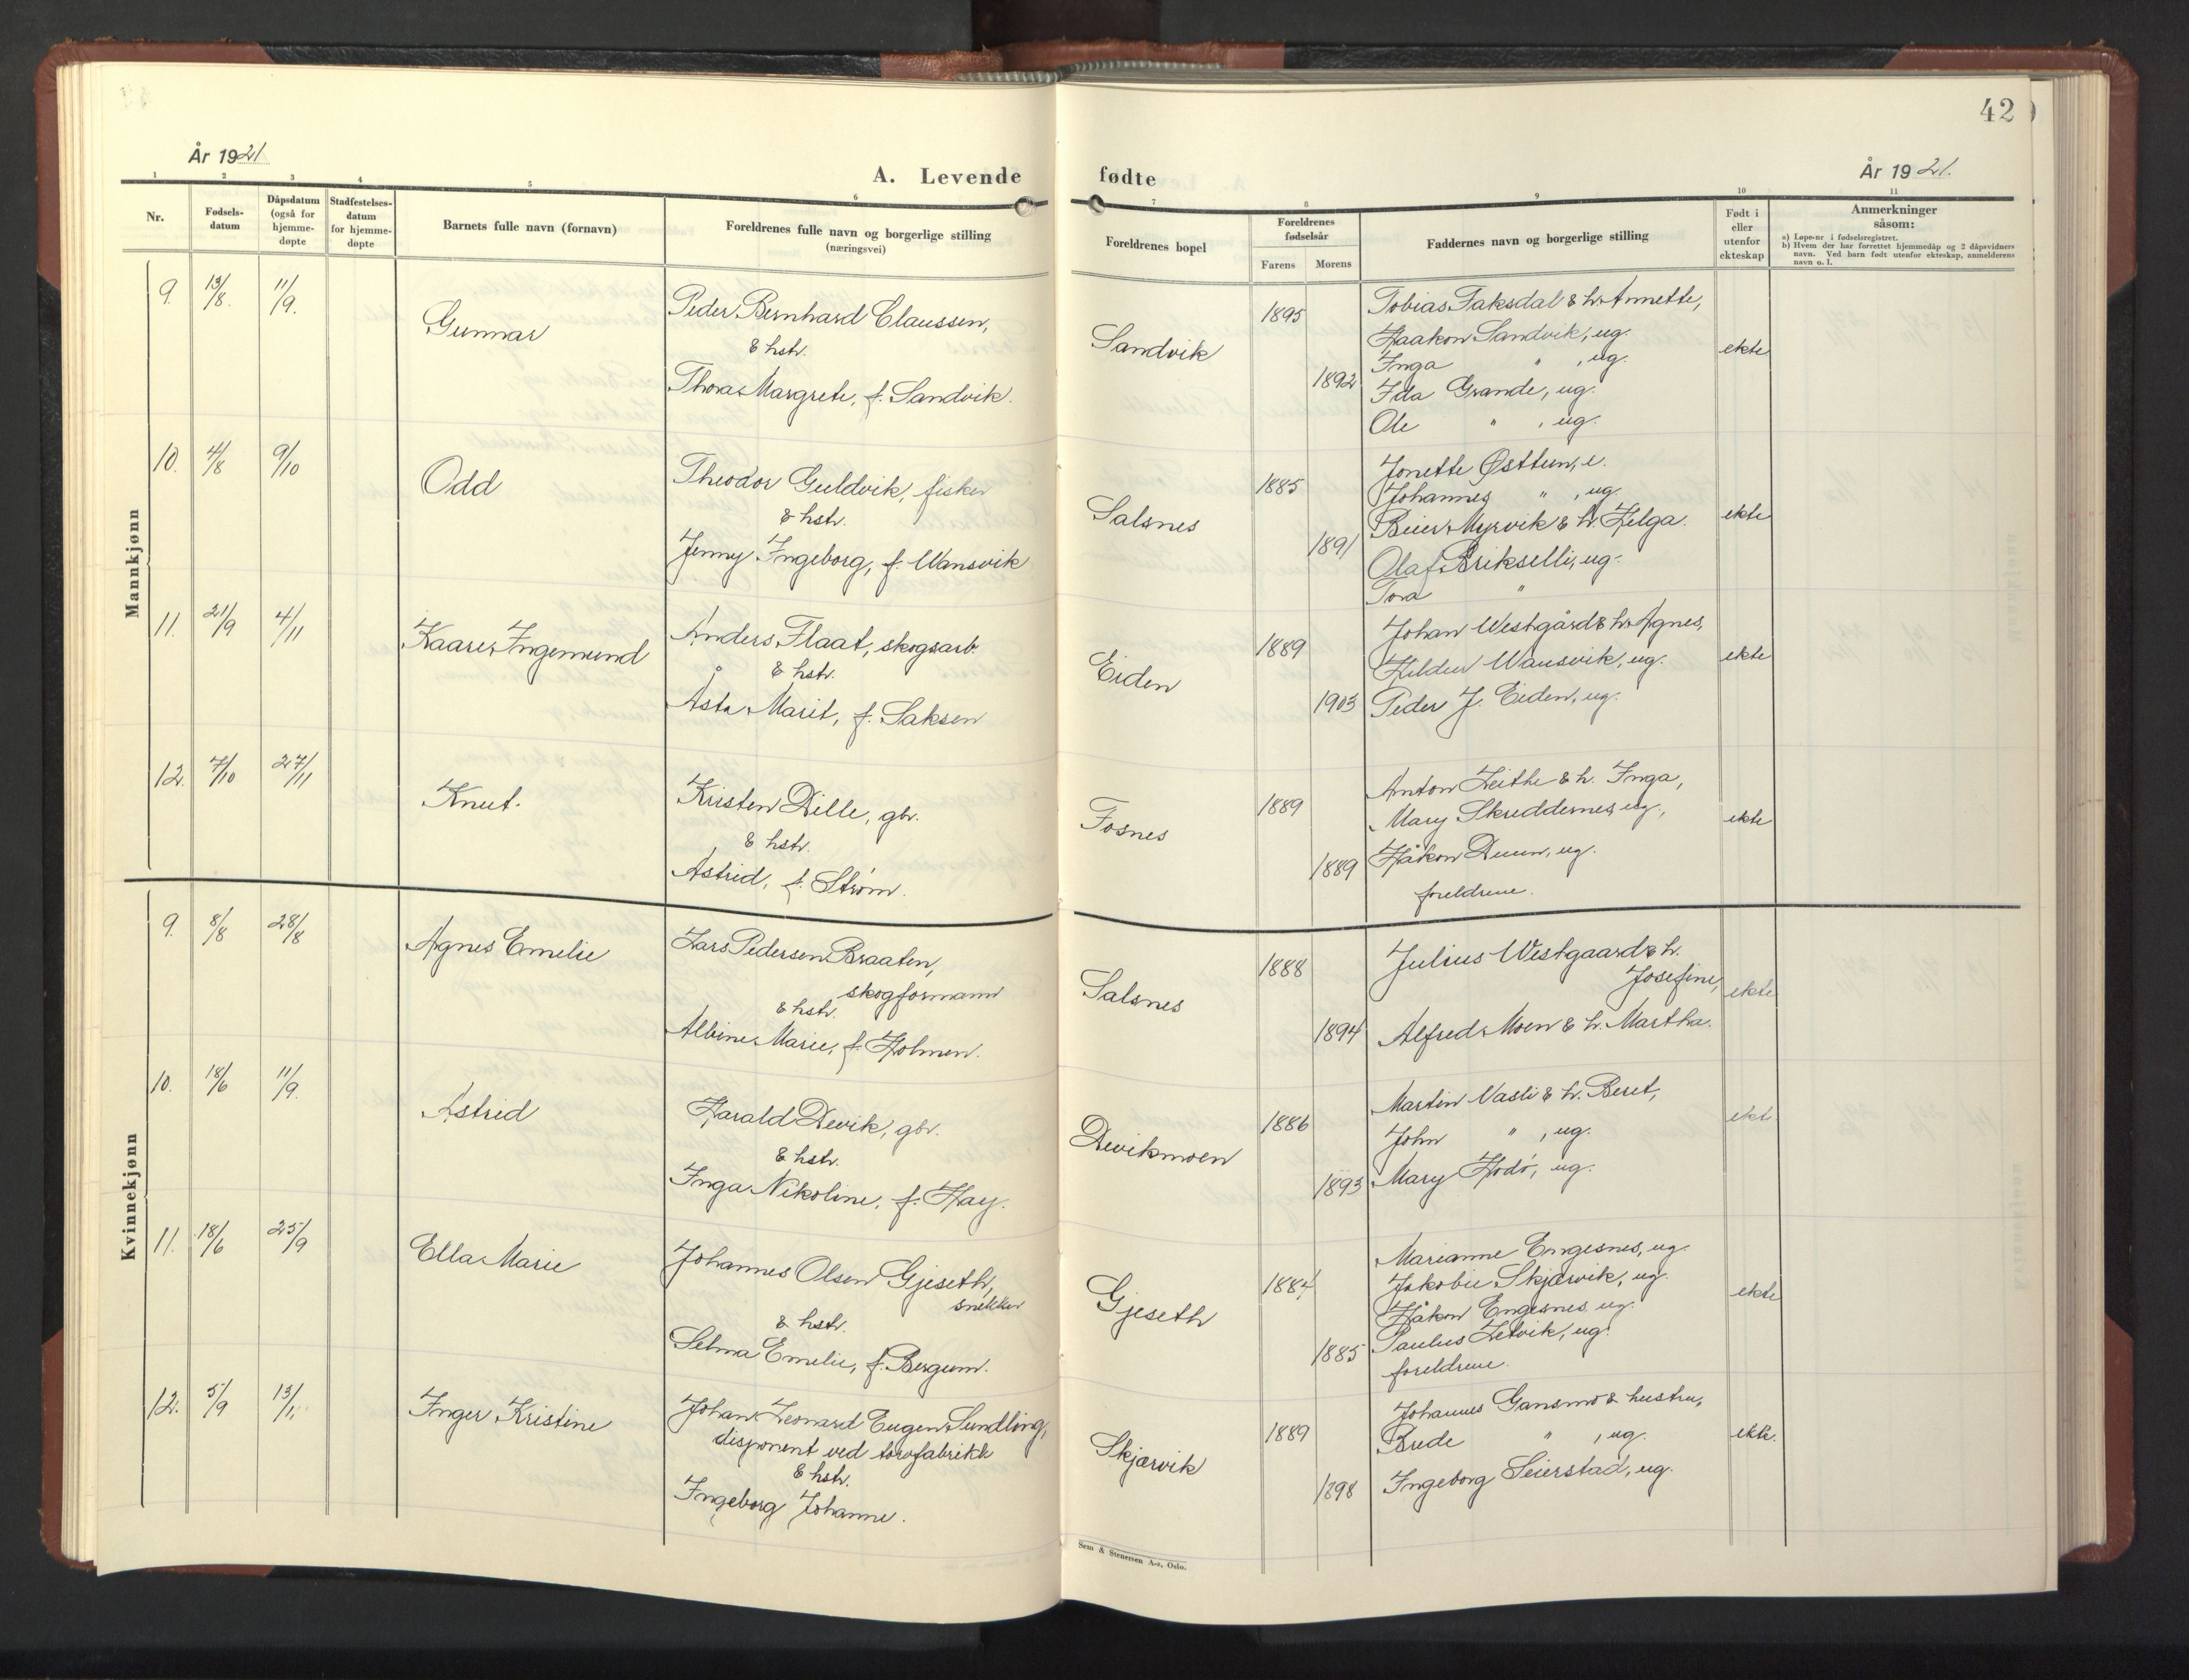 42
År 1921
A. Levende fødte
År 1921.
1 2 3 4 5 6 7 8 9 10 11
Nr.
Fødsels-
datum
Dåpsdatum
(også for
hjemme-
døpte
Stadfestelses-
datum
for hjemme-
døpte
Barnets fulle navn (fornavn)
Foreldrenes fulle navn og borgerlige stilling
(næringsvei)
Foreldrenes bopel
Foreldrenes
fødselsår
Farens Morens
Faddernes navn og borgerlige stilling
Født i
eller
utenfor
ekteskap
Anmerkninger
såsom:
a) Løpe-nr i fødselsregistret.
b) Hvem der har forrettet hjemmedåp og 2 dåpsvidners
navn. Ved barn født utenfor ekteskap, anmelderens
navn o. l.
Mannkjønn
9. 13/8. 11/9.
Gunnar
Peder Bernhard Claussen,
& hstr.
Thora Margrete, f. Sandvik.
Sandvik
1895
1892
Tobias Faksdal & h. Annette,
Haakon Sandvik, ug.
Inga " , ug.
Ida Grande, ug.
Ole " , ug.
ekte
10. 4/8 9/10
Odd
Theodor Guldvik, fisker
& hstr.
Jenny Ingeborg, f. Wansvik
Salsnes
1885
1891
Jonette Østtun, e.
Johannes " , ug.
Beier Myrvik & h. Helga.
Olaf Brikselli, ug.
Tora "
ekte
11. 21/9 4/11
Kaare Ingemund
Anders Flaat, skogsarb.
& hstr.
Åsta Marit, f. Saksen
Eiden
1889
1903
Johan Westgård & h. Agnes,
Hildur Wansvik, ug.
Peder J. Eiden, ug.
ekte
12. 7/10 27/11
Knut.
Kristen Dille, gbr.
& hstr.
Astrid, f. Strøm.
Fosnes
1889
1889
Anton Leithe & h. Inga,
Mary Skreddernes, ug.,
Håkon Duun, ug.
foreldrene.
ekte
Kvinnekjønn
9. 8/8 28/8
Agnes Emelie
Lars Pedersen Braaten,
skogformann
& hstr.
Albine Marie, f. Holmen.
Salsnes
1888
1894
Julius Westgaard & h.
Josefine,
Alfred Moen & h. Martha.
ekte
10. 18/6 11/9.
Astrid
Harald Devik, gbr.
& hstr.
Inga Nikoline, f. Hay.
Devikmoen
1886
1893
Martin Vasli & h. Beret,
John " , ug.
Mary Hodø, ug.
ekte
11. 18/6 25/9
Ella Marie
Johannes Olsen Gjeseth,
snekker
& hstr.
Selma Emelie, f. Bergum.
Gjeseth
1884
1885
Marianne Engesnes, ug.
Jakobie Skjærvik, ug.
Håkon Engesnes, ug.
Paulus Letvik, ug.
foreldrene.
ekte
12. 5/9
Inger Kristine
Johan Leonard Eugen Sundling,
disponent ved torvfabrikk
& hstr.
Ingeborg Johanne.
Skjærvik
1889
1898
Johannes Gansmo & hustru,
Brede " , ug.
Ingeborg Seierstad, ug.
ekte.
Sem & Stenersen A-s, Oslo.